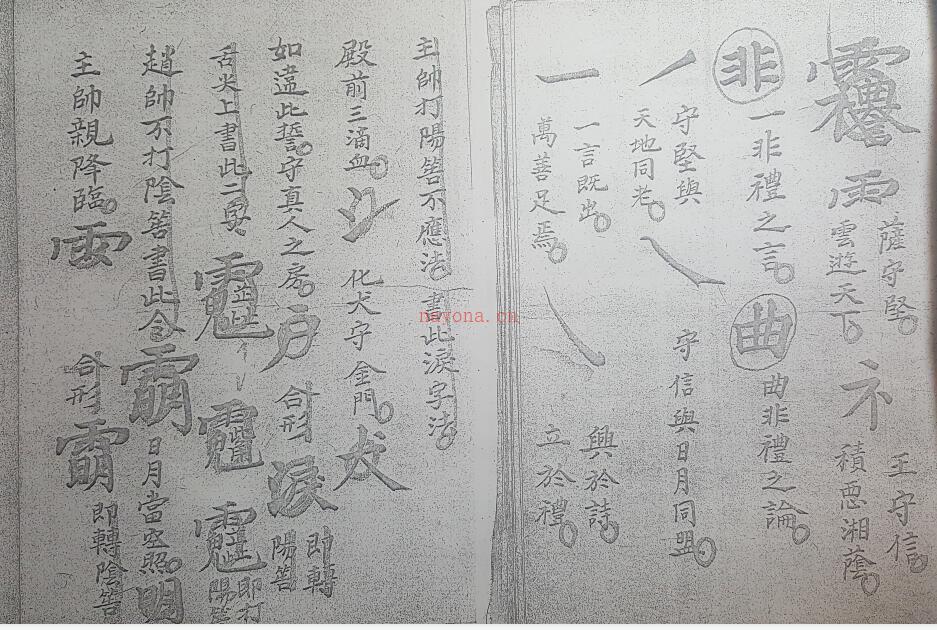 雨
薩守堅
雲遊天下
礻
王守信
積惡湘蔭
非
一非禮之言
曲
曲非禮之論
丿
守堅與
天地同老
乀
守信與日月同盟
一
一言既出
萬善足焉
乀
興於詩
立於禮
主帥打陽筶不應法
書此淚字法
殿前三滴血
氵
化犬守金門
犬
如違此誓守真人之房
戶
合形
淚
即轉
陽筶
舌尖上書此二字
即打
陽筶
趙帥不打陰筶書此令
日月當空照
明
主帥親降臨
雨
合形
即轉陰筶
nayona.cn